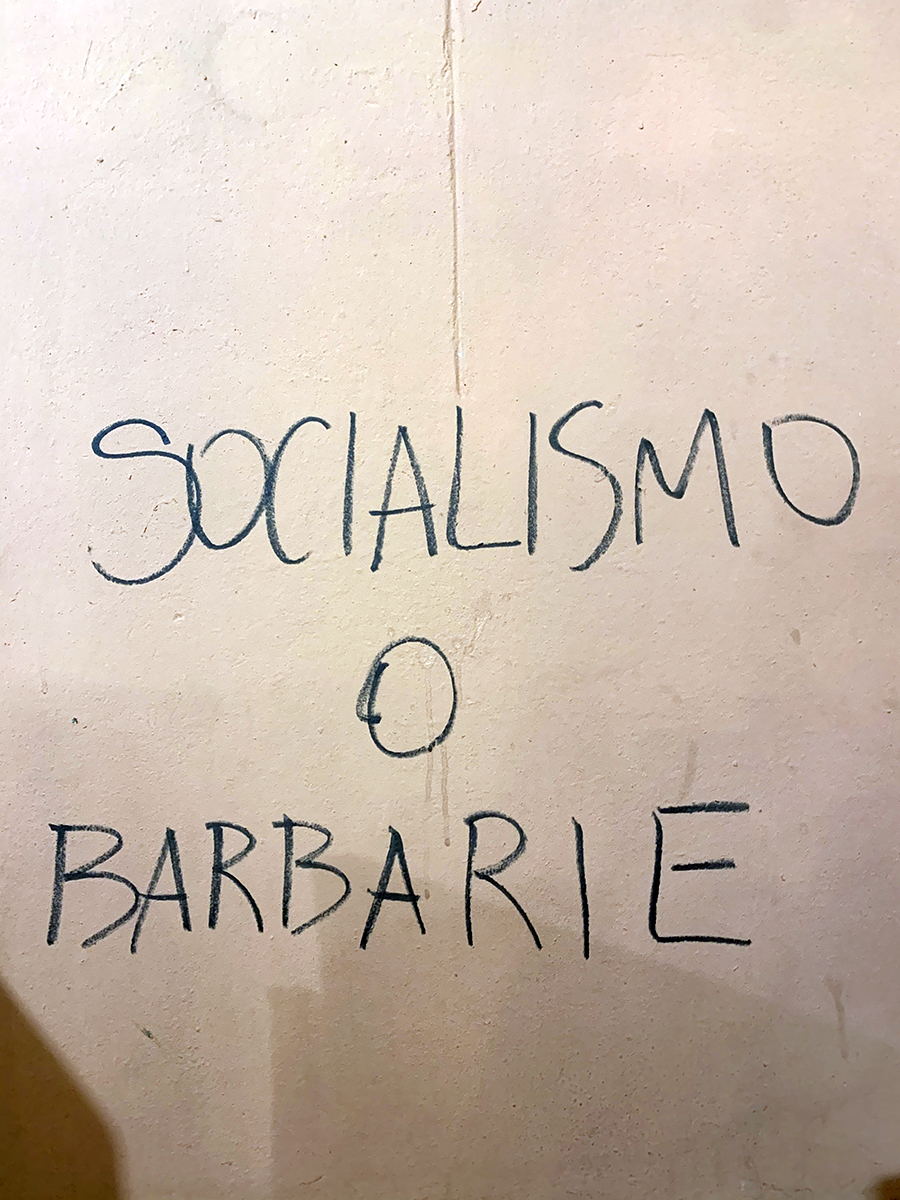 SOCIALISMO
O
BARBARIE